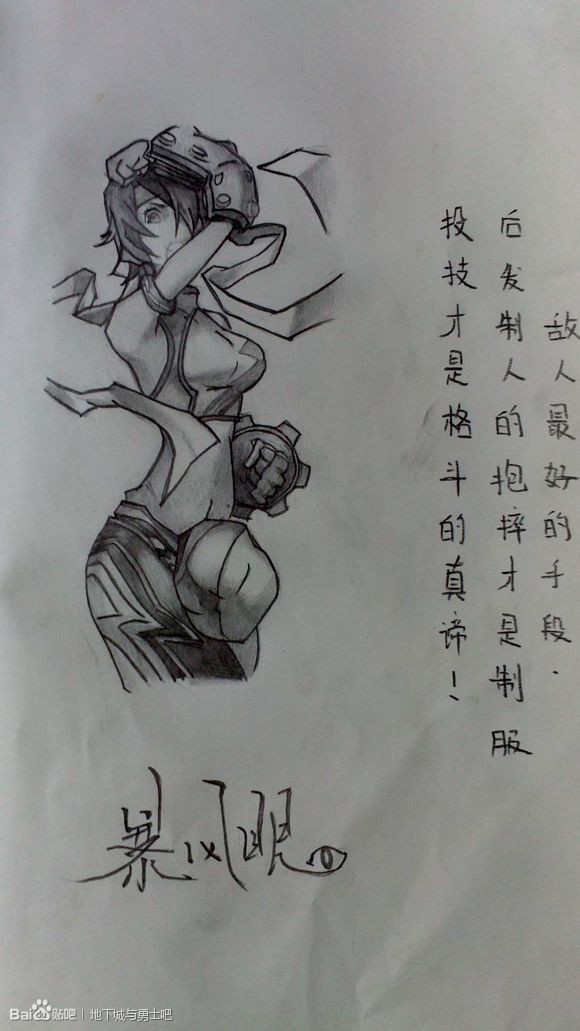 投技才是格斗的真谛！
后发制人的抱摔才是制服
敌人最好的手段.
暴风眼
Bai du 贴吧 | 地下城与勇士吧